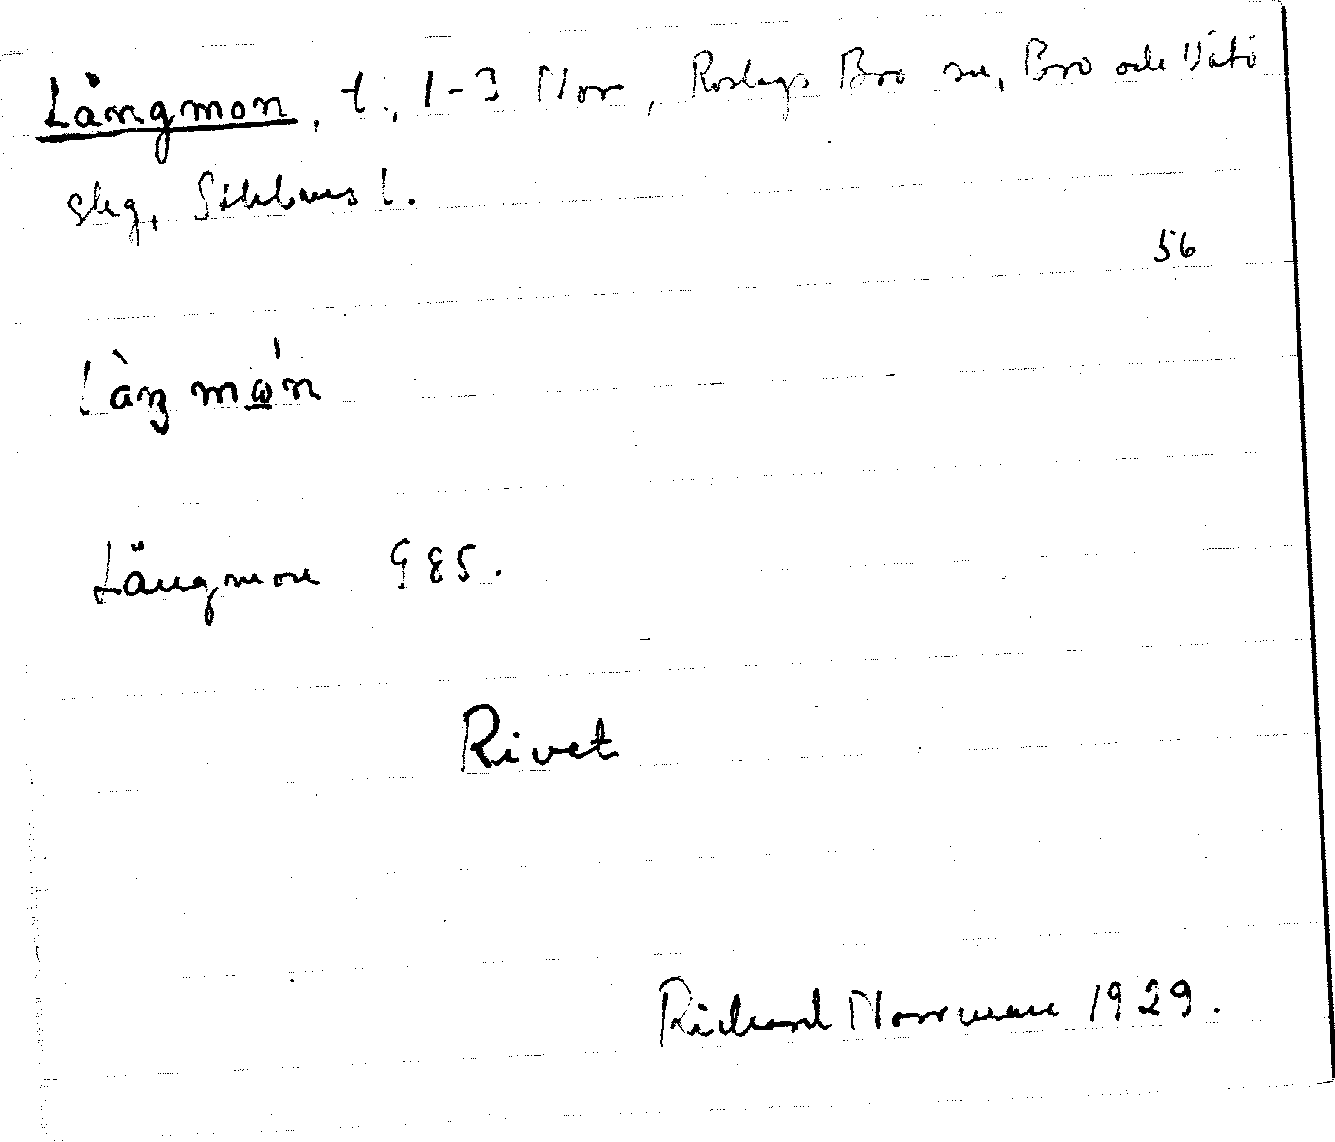 Långmon, t., 1-3 Nor, Roslags Bro sn, Bro och Vätö
skg, Sthlms l.
56
làŋmώ̲n
Långmon G E 5.
Rivet
Richard Norrman 1929.